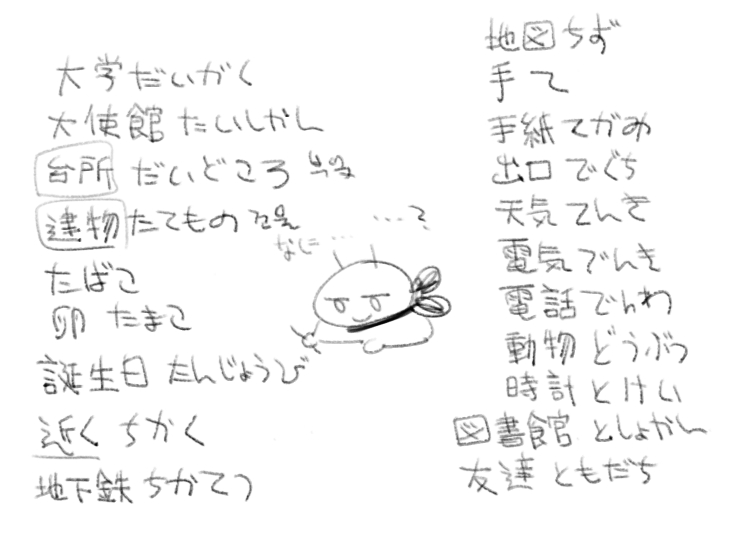 大学 だいがく
大使館 たいしかん
台所 だいどころ 부엌
建物 たてもの 건물
たばこ
卵 たまご
誕生日 たんじょうび
近く ちかく
地下鉄 ちかてつ
なに…
…?
地図 ちず
手 て
手紙 てがみ
出口 でぐち
天気 てんき
電気 でんき
電話 でんわ
動物 どうぶつ
時計 とけい
図書館 としょかん
友達 ともだち